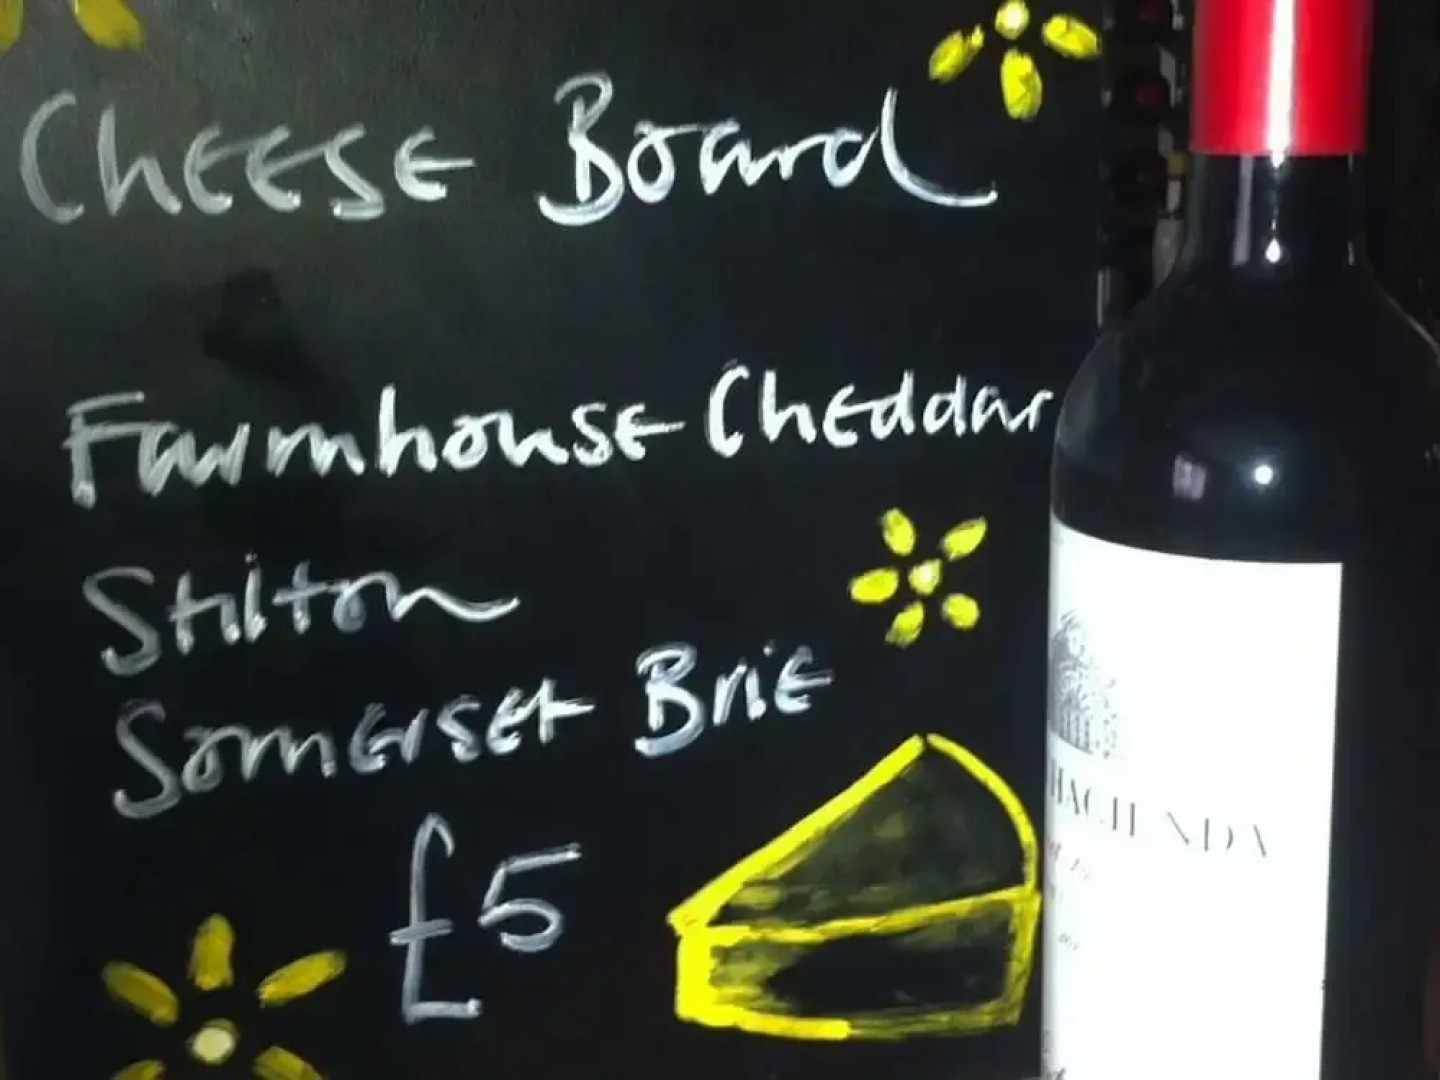 Cheese Board
Farmhouse Cheddar
Stilton
Somerset Brie
£5
HACIENDA